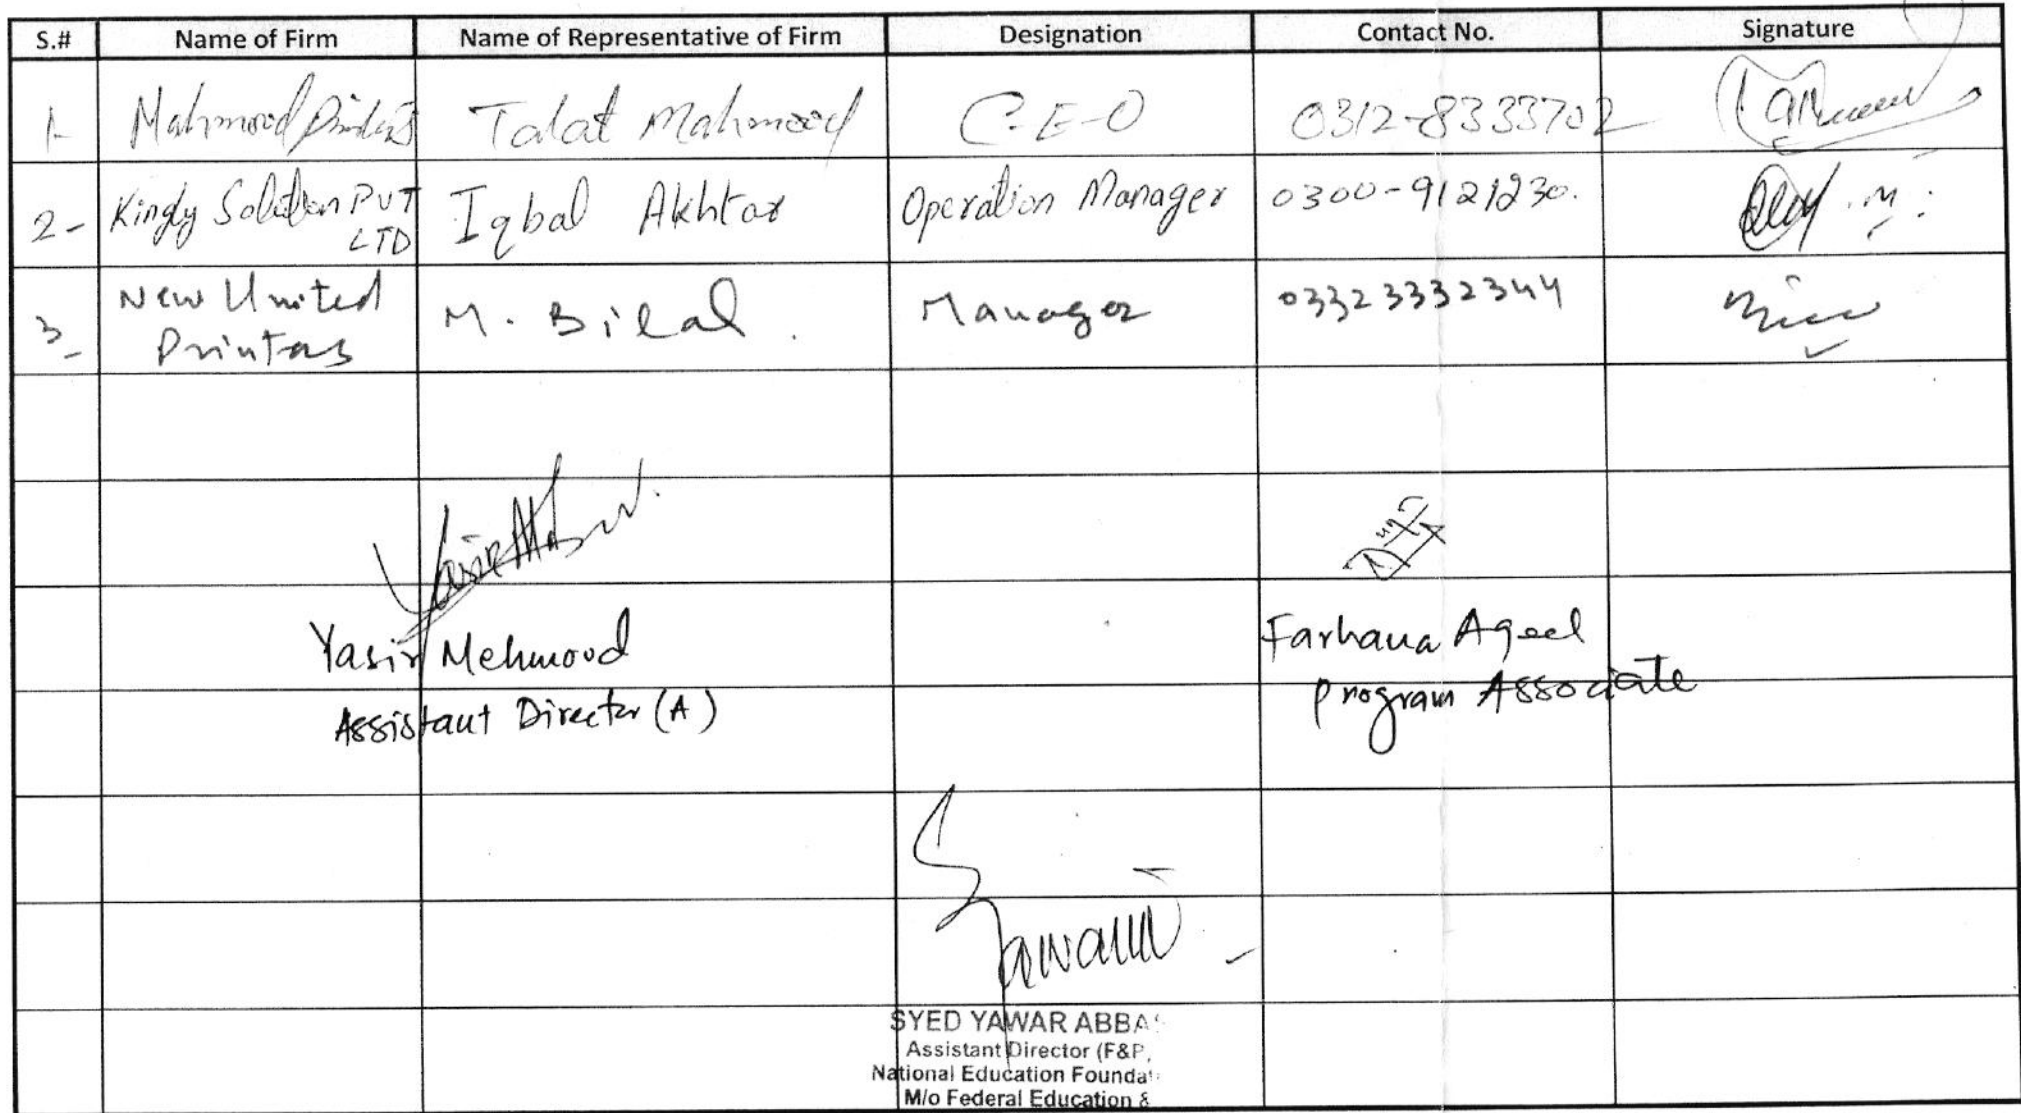 S.# Name of Firm Name of Representative of Firm Designation Contact No. Signature
1- Mahmood Printers Talat Mahmood C.E-O 0312-8333702
2- Kingly Solution PVT LTD Iqbal Akhtar Operation Manager 0300-9121230.
3- New United Printers M. Bilal. Manager 03323332344
Yasir Mehmood
Assistant Director (A)
Farhana Aqeel
Program Associate
SYED YAWAR ABBAS
Assistant Director (F&P,
National Education Foundat
M/o Federal Education &